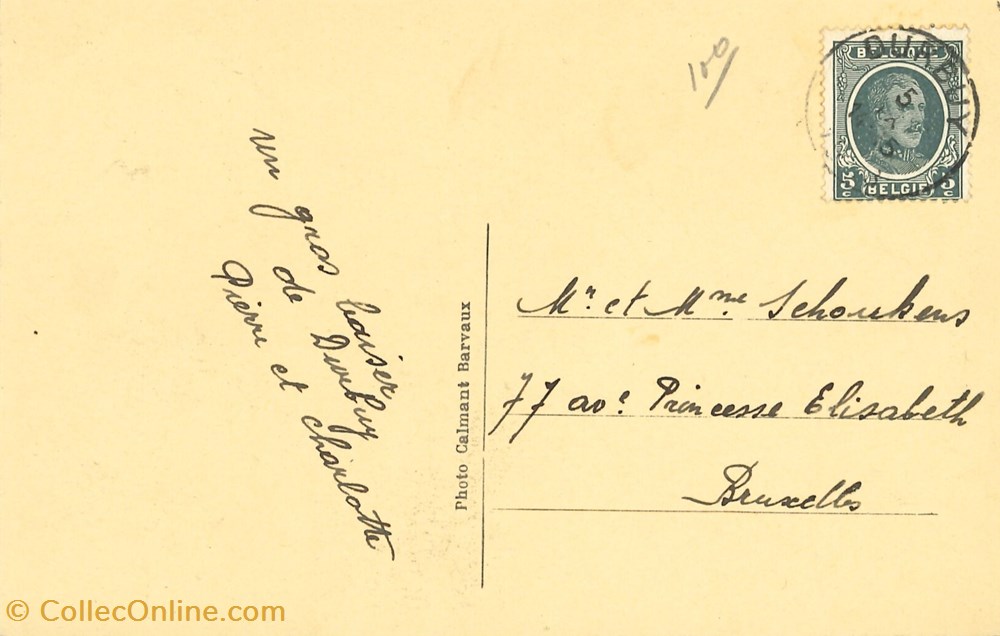 100
BELGIQUE
DURBUY
5
5
5c
5c
BELGIE
un gros baiser
de Durbuy
Pierre et Charlotte
Photo Calmant Barvaux
Mr. et Mme Schoukens
77 ave. Princesse Elisabeth
Bruxelles
© CollecOnline.com